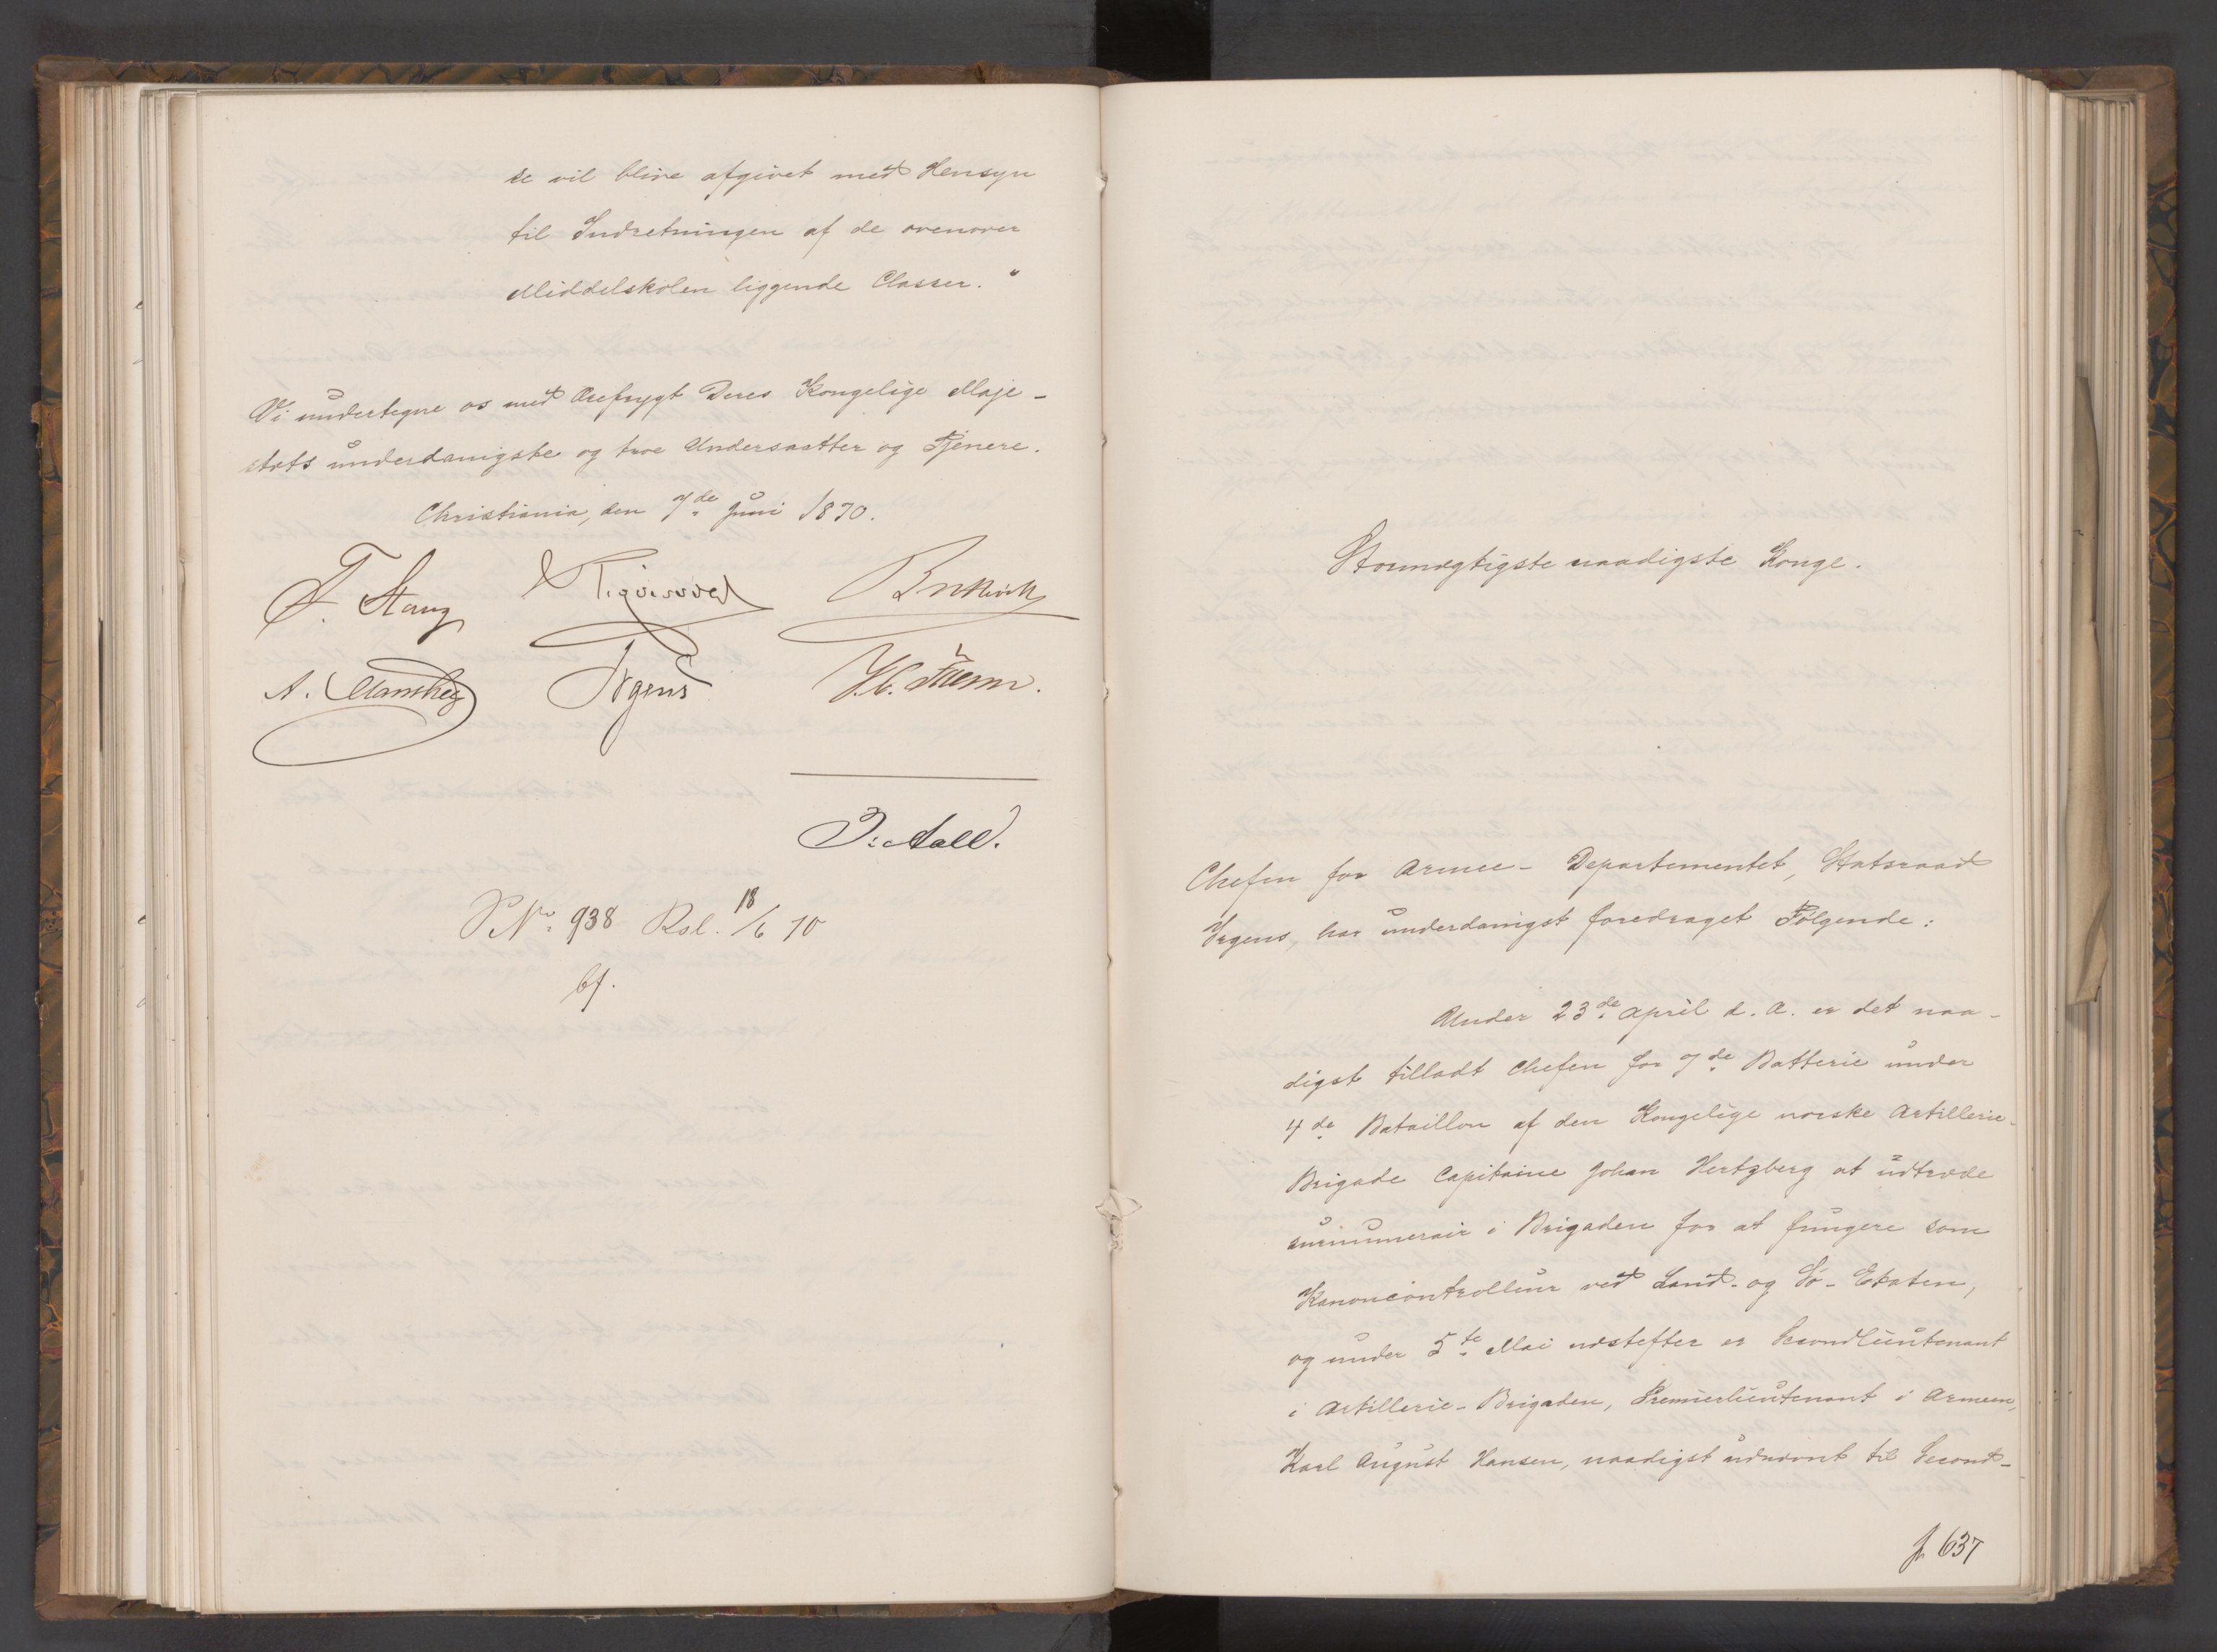 se vil blive afgivet med Hensyn
til Indretningen af de ovenover
Middelskolen liggende Classer."
Vi undertegne os med Ærefrygt Deres Kongelige Maje-
stæts underdanigste og troe Undersaatter og Tjenere.
Christiania, den 7de Juni 1870.
F. Stang
A. Manthey Irgens
O: Aall.
S No. 938 Rsl. 18/6 70
bf.
Stormægtigste naadigste Konge.
Chefen for Armee-Departementet, Statsraad
Irgens, har underdanigst foredraget Følgende:
Under 23de April d. A. er det naa-
digst tilladt Chefen for 7de Batterie under
4de Bataillon af den Kongelige norske Artillerie-
Brigade Capitaine Johan Hertzberg at udtræde
surnumerair i Brigaden for at fungere som
Kanoncontrolleur ved Land- og Sø-Etaten,
og under 5te Mai næstefter er Secondlieutenant
i Artillerie-Brigaden, Premierlieutenant i Armeen,
Karl August Hansen, naadigst udnævnt til Second-
J. 637